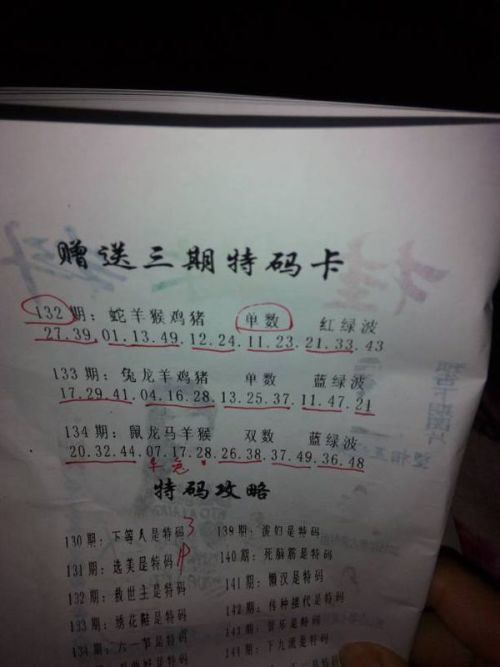 赠送三期特码卡
132期：蛇羊猴鸡猪 单数 红绿波
27.39.01.13.49.12.24.11.23.21.33.43
133期：兔龙羊鸡猪 单数 蓝绿波
17.29.41.04.16.28.13.25.37.11.47.21
134期：鼠龙马羊猴 双数 蓝绿波
20.32.44.07.17.28.26.38.37.49.36.48
特码攻略
130期：下等人是特码 3 139期：波们是特码
131期：选美是特码 140期：死脑筋是特码
132期：救世主是特码 141期：懒汉是特码
133期：绣花鞋是特码 142期：传种接代是特码
134期：六一节是特码 143期：音乐是特码
144期：下九流是特码